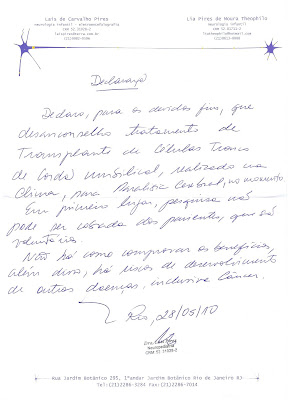 Lais de Carvalho Pires
neurologia infantil - eletroencefalografia
CRM 52
Lia Pires de Moura Theophilo
neurologia infantil
CRM 52
Declaração
Declaro, para os devidos fins, que
desaconselho tratamento de
Transplante de Células Tronco
de Cordão umbilical, realizado na
China, para Paralisia Cerebral, no momento
Em primeiro lugar, pesquisa não
pode ser cobrada dos pacientes, que são
voluntários.
Não há como comprovar os benefícios,
além disso, há riscos de desenvolvimento
de outras doenças, inclusive Câncer.
Rio, 28/05/10
Neuropediatra
Rua Jardim Botânico 295, 1ºandar Jardim Botânico Rio de Janeiro RJ
Tel:(21)2286-3284 Fax:(21)2286-7014